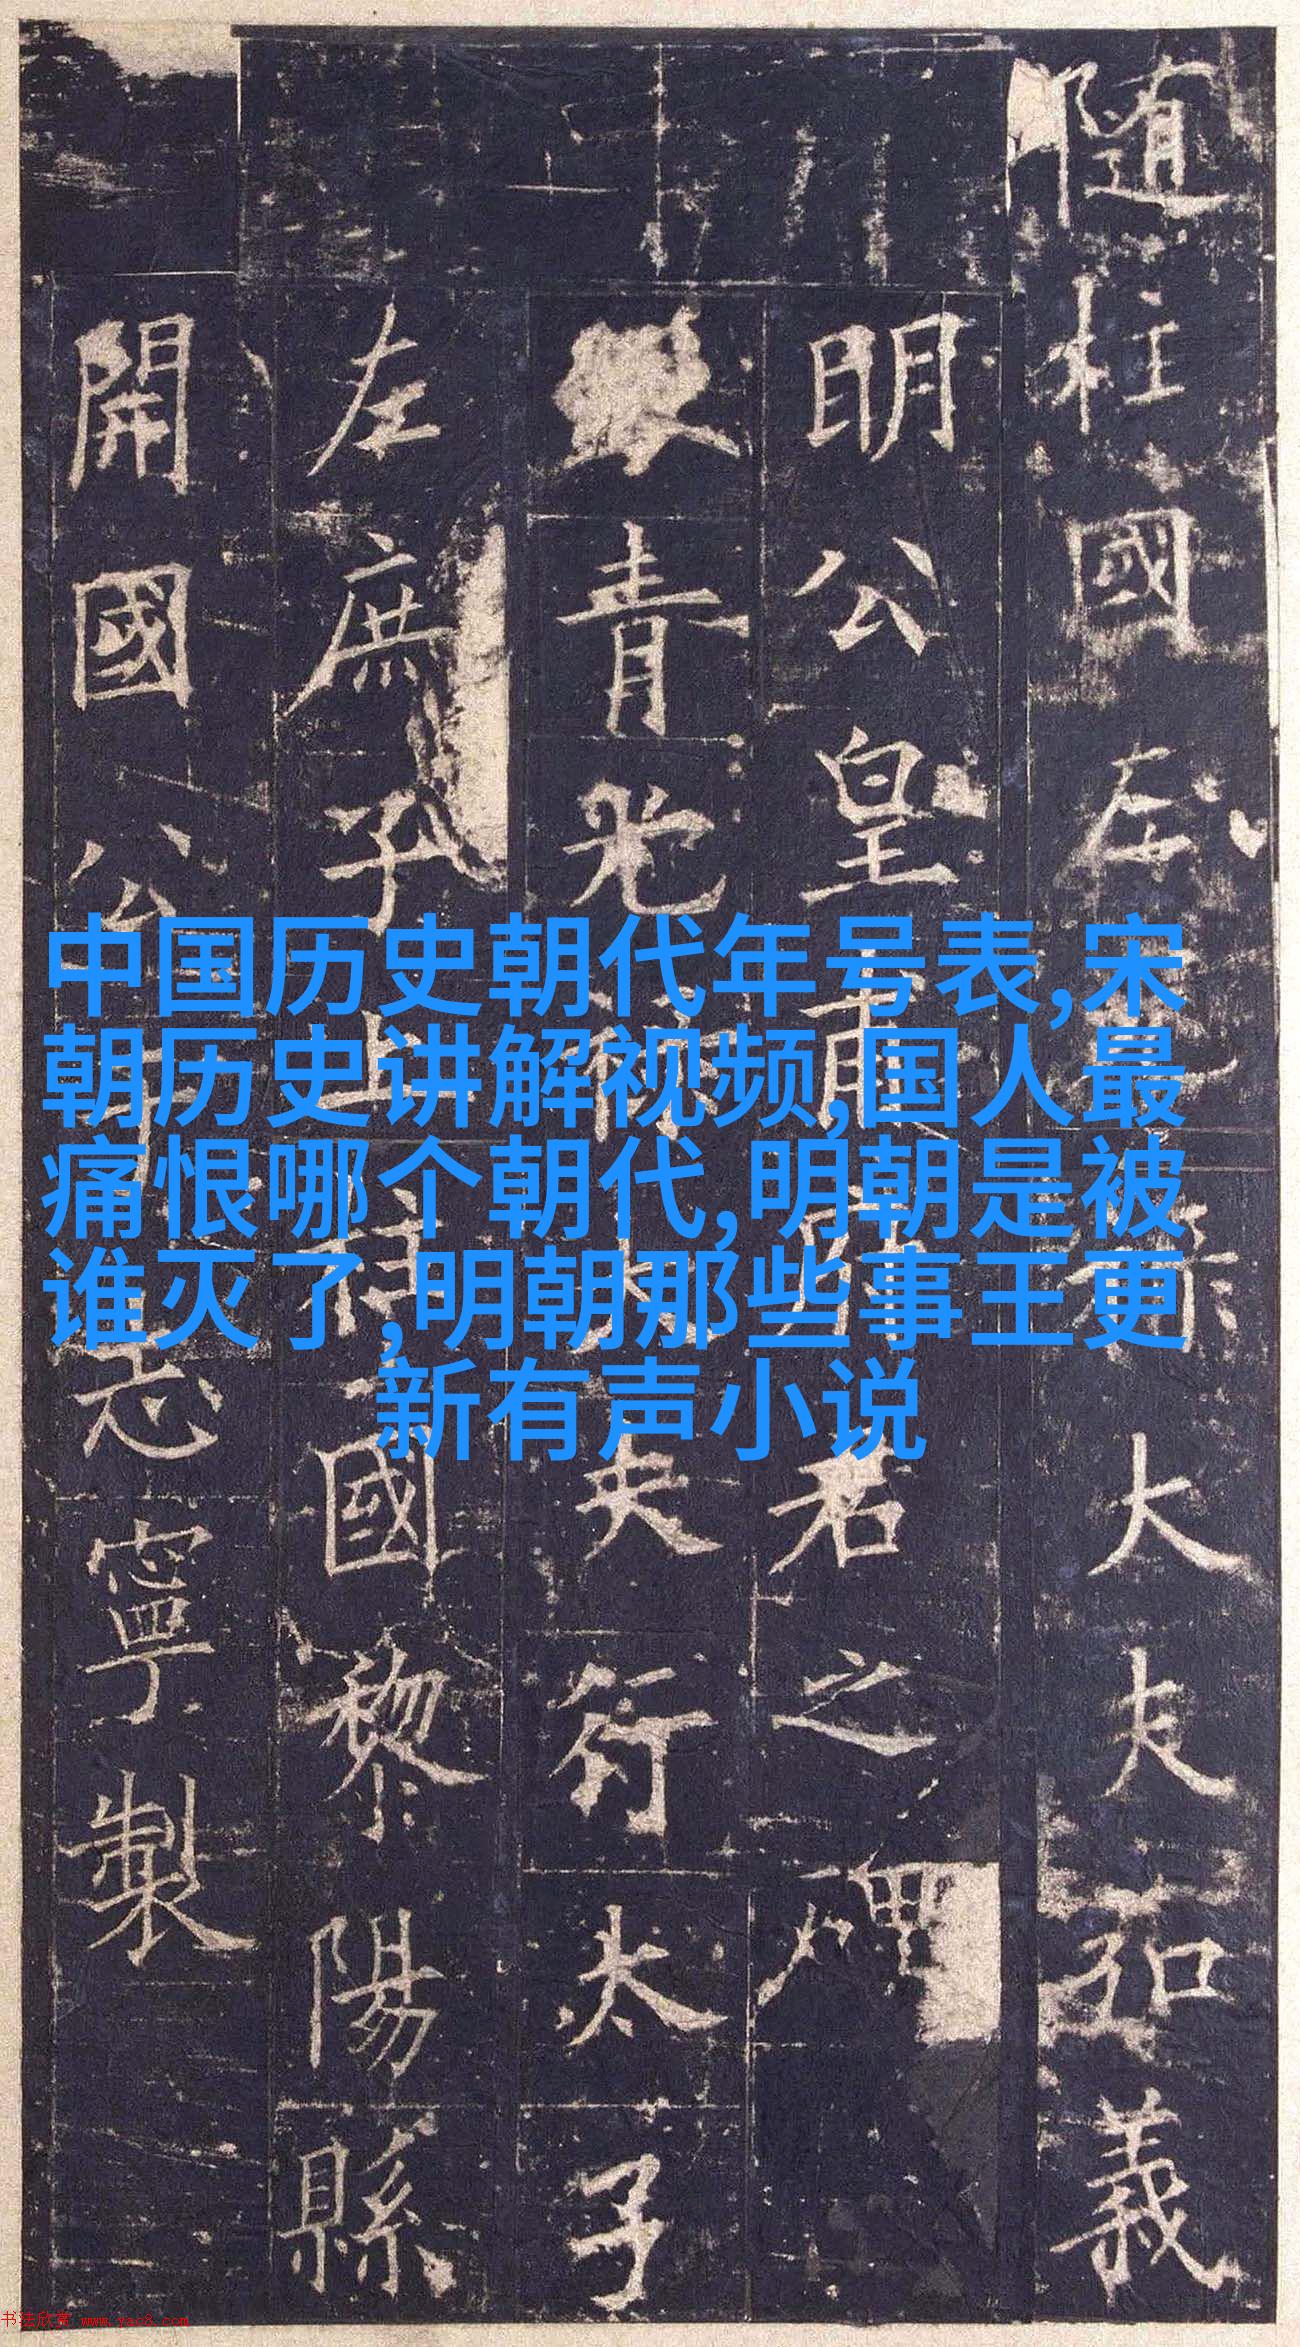 隨柱國左光祿大夫弘義
明公皇甫府君之碑
銀青光祿大夫行太子
左庶子上柱國黎陽縣
開國公于志寧製
中国历史朝代年号表,宋
朝历史讲解视频,国人最
痛恨哪个朝代,明朝是被
谁灭了,明朝那些事王更
新有声小说
书法欣赏 www.yac8.com